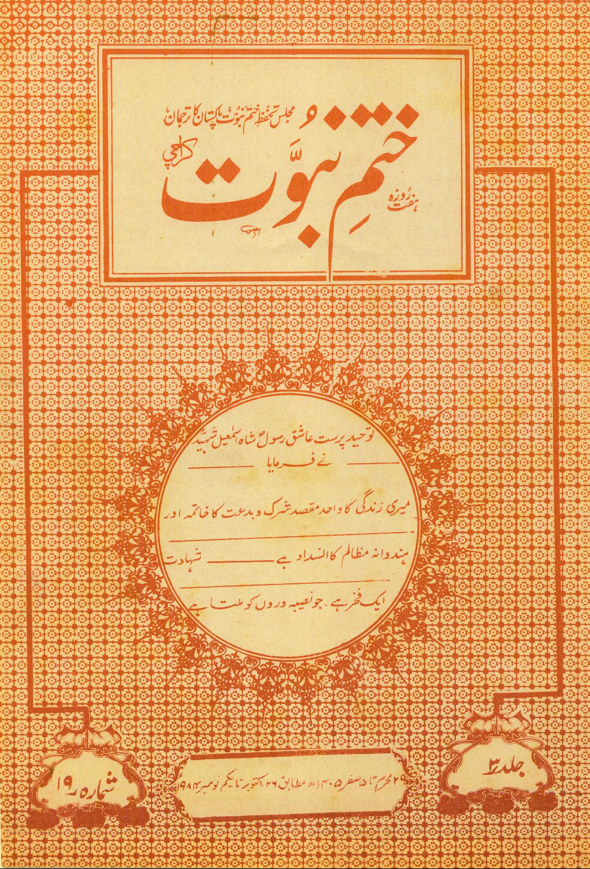 مجلس تحفظ ختم نبوت پاکستان کا ترجمان
کراچی
ختمِ نبوّت
ہفت روزہ
توحید پرست عاشق رسولؐ شاہ اسمٰعیل شہیدؒ
نے فرمایا
میری زندگی کا واحد مقصد شرک و بدعت کا خاتمہ اور
ہندوانہ مظالم کا انسداد ہے ـــــ شہادت
ایک فخر ہے۔ جو نصیبہ وروں کو ملتا ہے
جلد ۳
۲۹ محرم تا ۵ صفر ۱۴۰۵ھ مطابق ۲۶ اکتوبر تا یکم نومبر ۱۹۸۴
شمارہ ۱۹